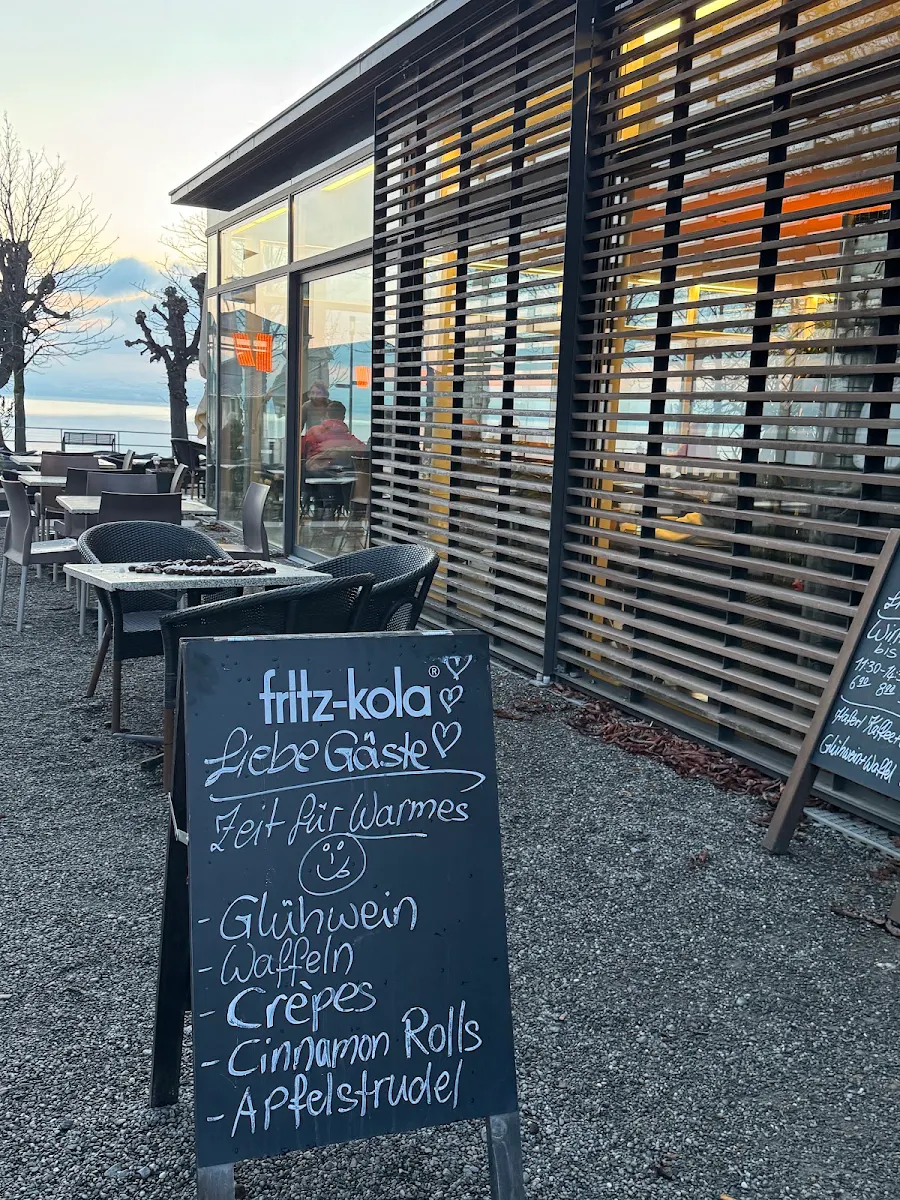 fritz-kola®
Liebe Gäste
Zeit für Warmes
- Glühwein
- Waffeln
- Crèpes
- Cinnamon Rolls
- Apfelstrudel
bis
11:30-14:3
6,90 8,00
Glühwein+Waffel